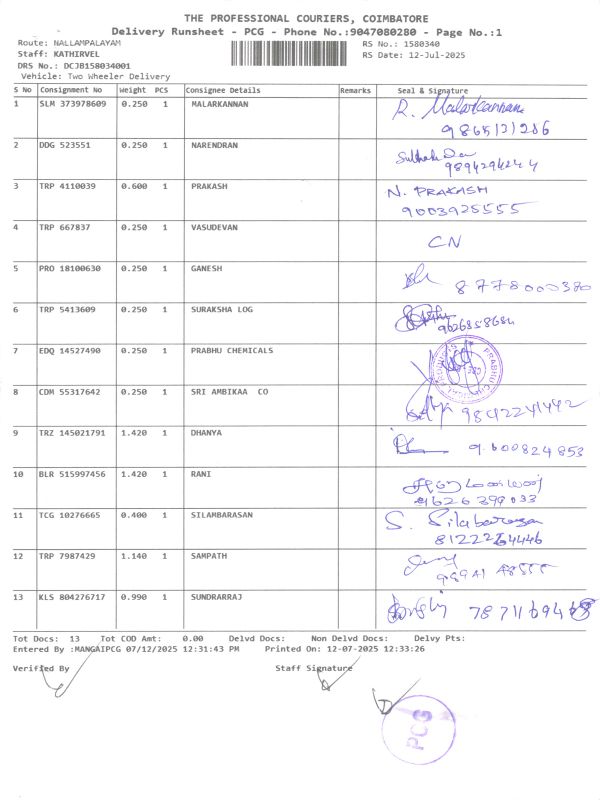 THE PROFESSIONAL COURIERS, COIMBATORE
Delivery Runsheet - PCG - Phone No.:9047080280 - Page No.:1
Route: NALLAMPALAYAM RS No.: 1580340
Staff: KATHIRVEL RS Date: 12-Jul-2025
DRS No.: DCJB158034001
Vehicle: Two Wheeler Delivery
S No Consignment No Weight PCS Consignee Details Remarks Seal & Signature
1 SLM 373978609 0.250 1 MALARKANNAN R. Malarkannan
9865131286
2 DDG 523551 0.250 1 NARENDRAN
9894294244
3 TRP 4110039 0.600 1 PRAKASH N. PRAKASH
9003925555
4 TRP 667837 0.250 1 VASUDEVAN CN
5 PRO 18100630 0.250 1 GANESH 8778000380
6 TRP 5413609 0.250 1 SURAKSHA LOG
9626858684
7 EDQ 14527490 0.250 1 PRABHU CHEMICALS
8 CDM 55317642 0.250 1 SRI AMBIKAA CO 9842241442
9 TRZ 145021791 1.420 1 DHANYA 9600824853
10 BLR 515997456 1.420 1 RANI
9626399033
11 TCG 10276665 0.400 1 SILAMBARASAN S. Silabarasan
8122264446
12 TRP 7987429 1.140 1 SAMPATH
13 KLS 804276717 0.990 1 SUNDRARRAJ
Tot Docs: 13 Tot COD Amt: 0.00 Delvd Docs: Non Delvd Docs: Delvy Pts:
Entered By :MANGAIPCG 07/12/2025 12:31:43 PM Printed On: 12-07-2025 12:33:26
Verified By Staff Signature
PCG